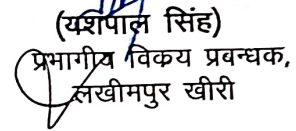 (यशपाल सिंह)
प्रभागीय विकय प्रबन्धक,
लखीमपुर खीरी